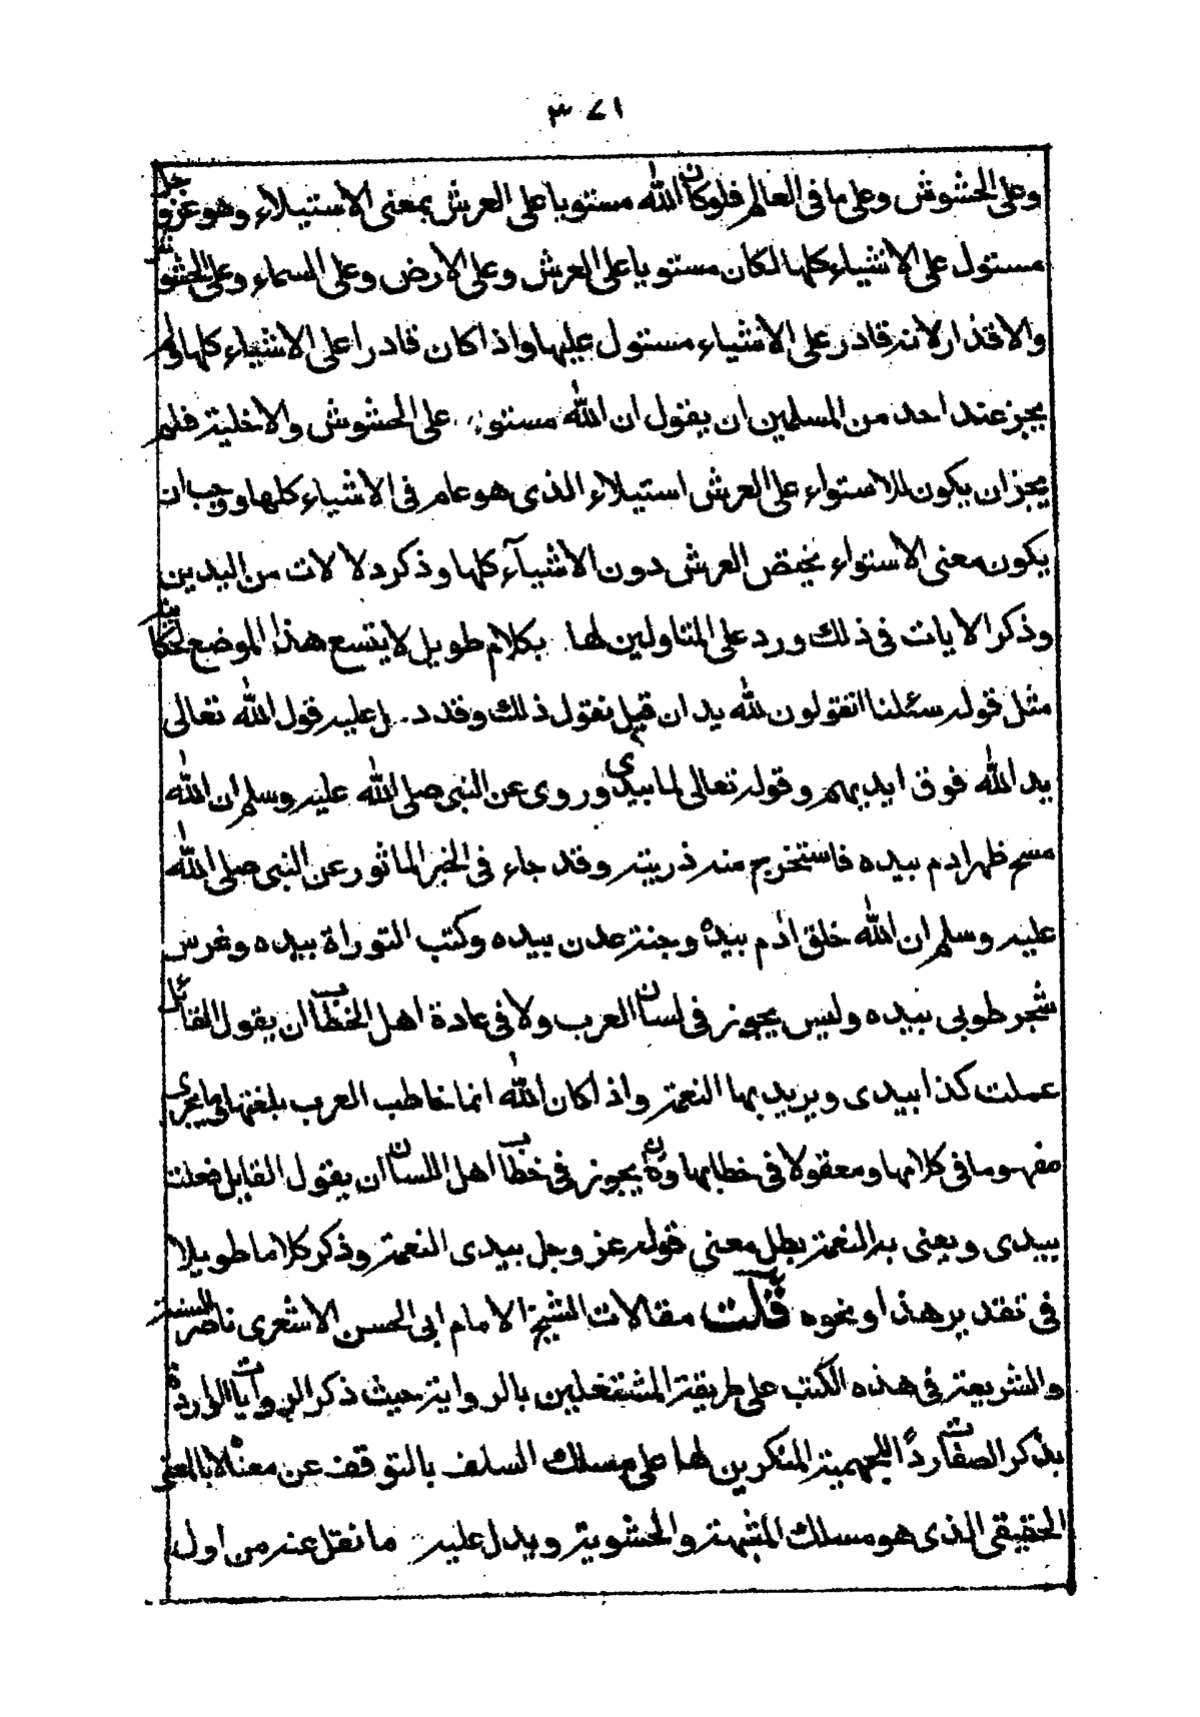 ٣٧١
وعلى الحشوش وعلى ما فى العالم فلو كان الله مستويا على العرش بمعنى الاستيلاء وهو عز وجل
مستول على الاشياء كلها لكان مستويا على العرش وعلى الارض وعلى السماء وعلى الحشوش
والاقذار لانه قادر على الاشياء مستول عليها واذا كان قادرا على الاشياء كلها ولم
يجز عند احد من المسلمين ان يقول ان الله مستو على الحشوش والاخلية فلم
يجز ان يكون للاستواء على العرش استيلاء الذى هو عام فى الاشياء كلها ووجب ان
يكون معنى الاستواء يختص العرش دون الاشيآء كلها وذكر دلالات من اليدين
وذكر الايات فى ذلك ورد على المتاولين لها بكلام طويل لا يتسع هذا الموضع لحكايته
مثل قوله سئلنا اتقولون لله يدان قيل نقول ذلك وقد دل عليه قول الله تعالى
يد الله فوق ايديهم وقوله تعالى لما بيدى وروى عن النبى صلى الله عليه وسلم ان الله
مسح ظهر ادم بيده فاستخرج منه ذريته وقد جاء فى الخبر الماثور عن النبى صلى الله
عليه وسلم ان الله خلق ادم بيده وجنة عدن بيده وكتب التوراة بيده وغرس
شجر طوبى بيده وليس يجوز فى لسان العرب ولا فى عادة اهل الخطاب ان يقول القائل
عملت كذا بيدى ويريد بها النعمة واذا كان الله انما خاطب العرب بلغتها وما يجرى
مفهوما فى كلامها ومعقولا فى خطابها وكان يجوز فى خطاب اهل اللسان ان يقول القايل فعلت
بيدى ويعنى به النعمة بطل معنى قوله عز وجل بيدى النعمة وذكر كلاما طويلا
فى تقدير هذا او نحوه قلت مقالات الشيخ الامام ابى الحسن الاشعرى ناصر السنة
والشريعة فى هذه الكتب على طريقة المشتغلين بالرواية حيث ذكر الروايات الواردة
بذكر الصفات ردًا للجهمية المنكرين لها على مسلك السلف بالتوقف عن معناه لا بالمعنى
الحقيقى الذى هو مسلك المشبهة والحشوية ويدل عليه ما نقل عنه من اول